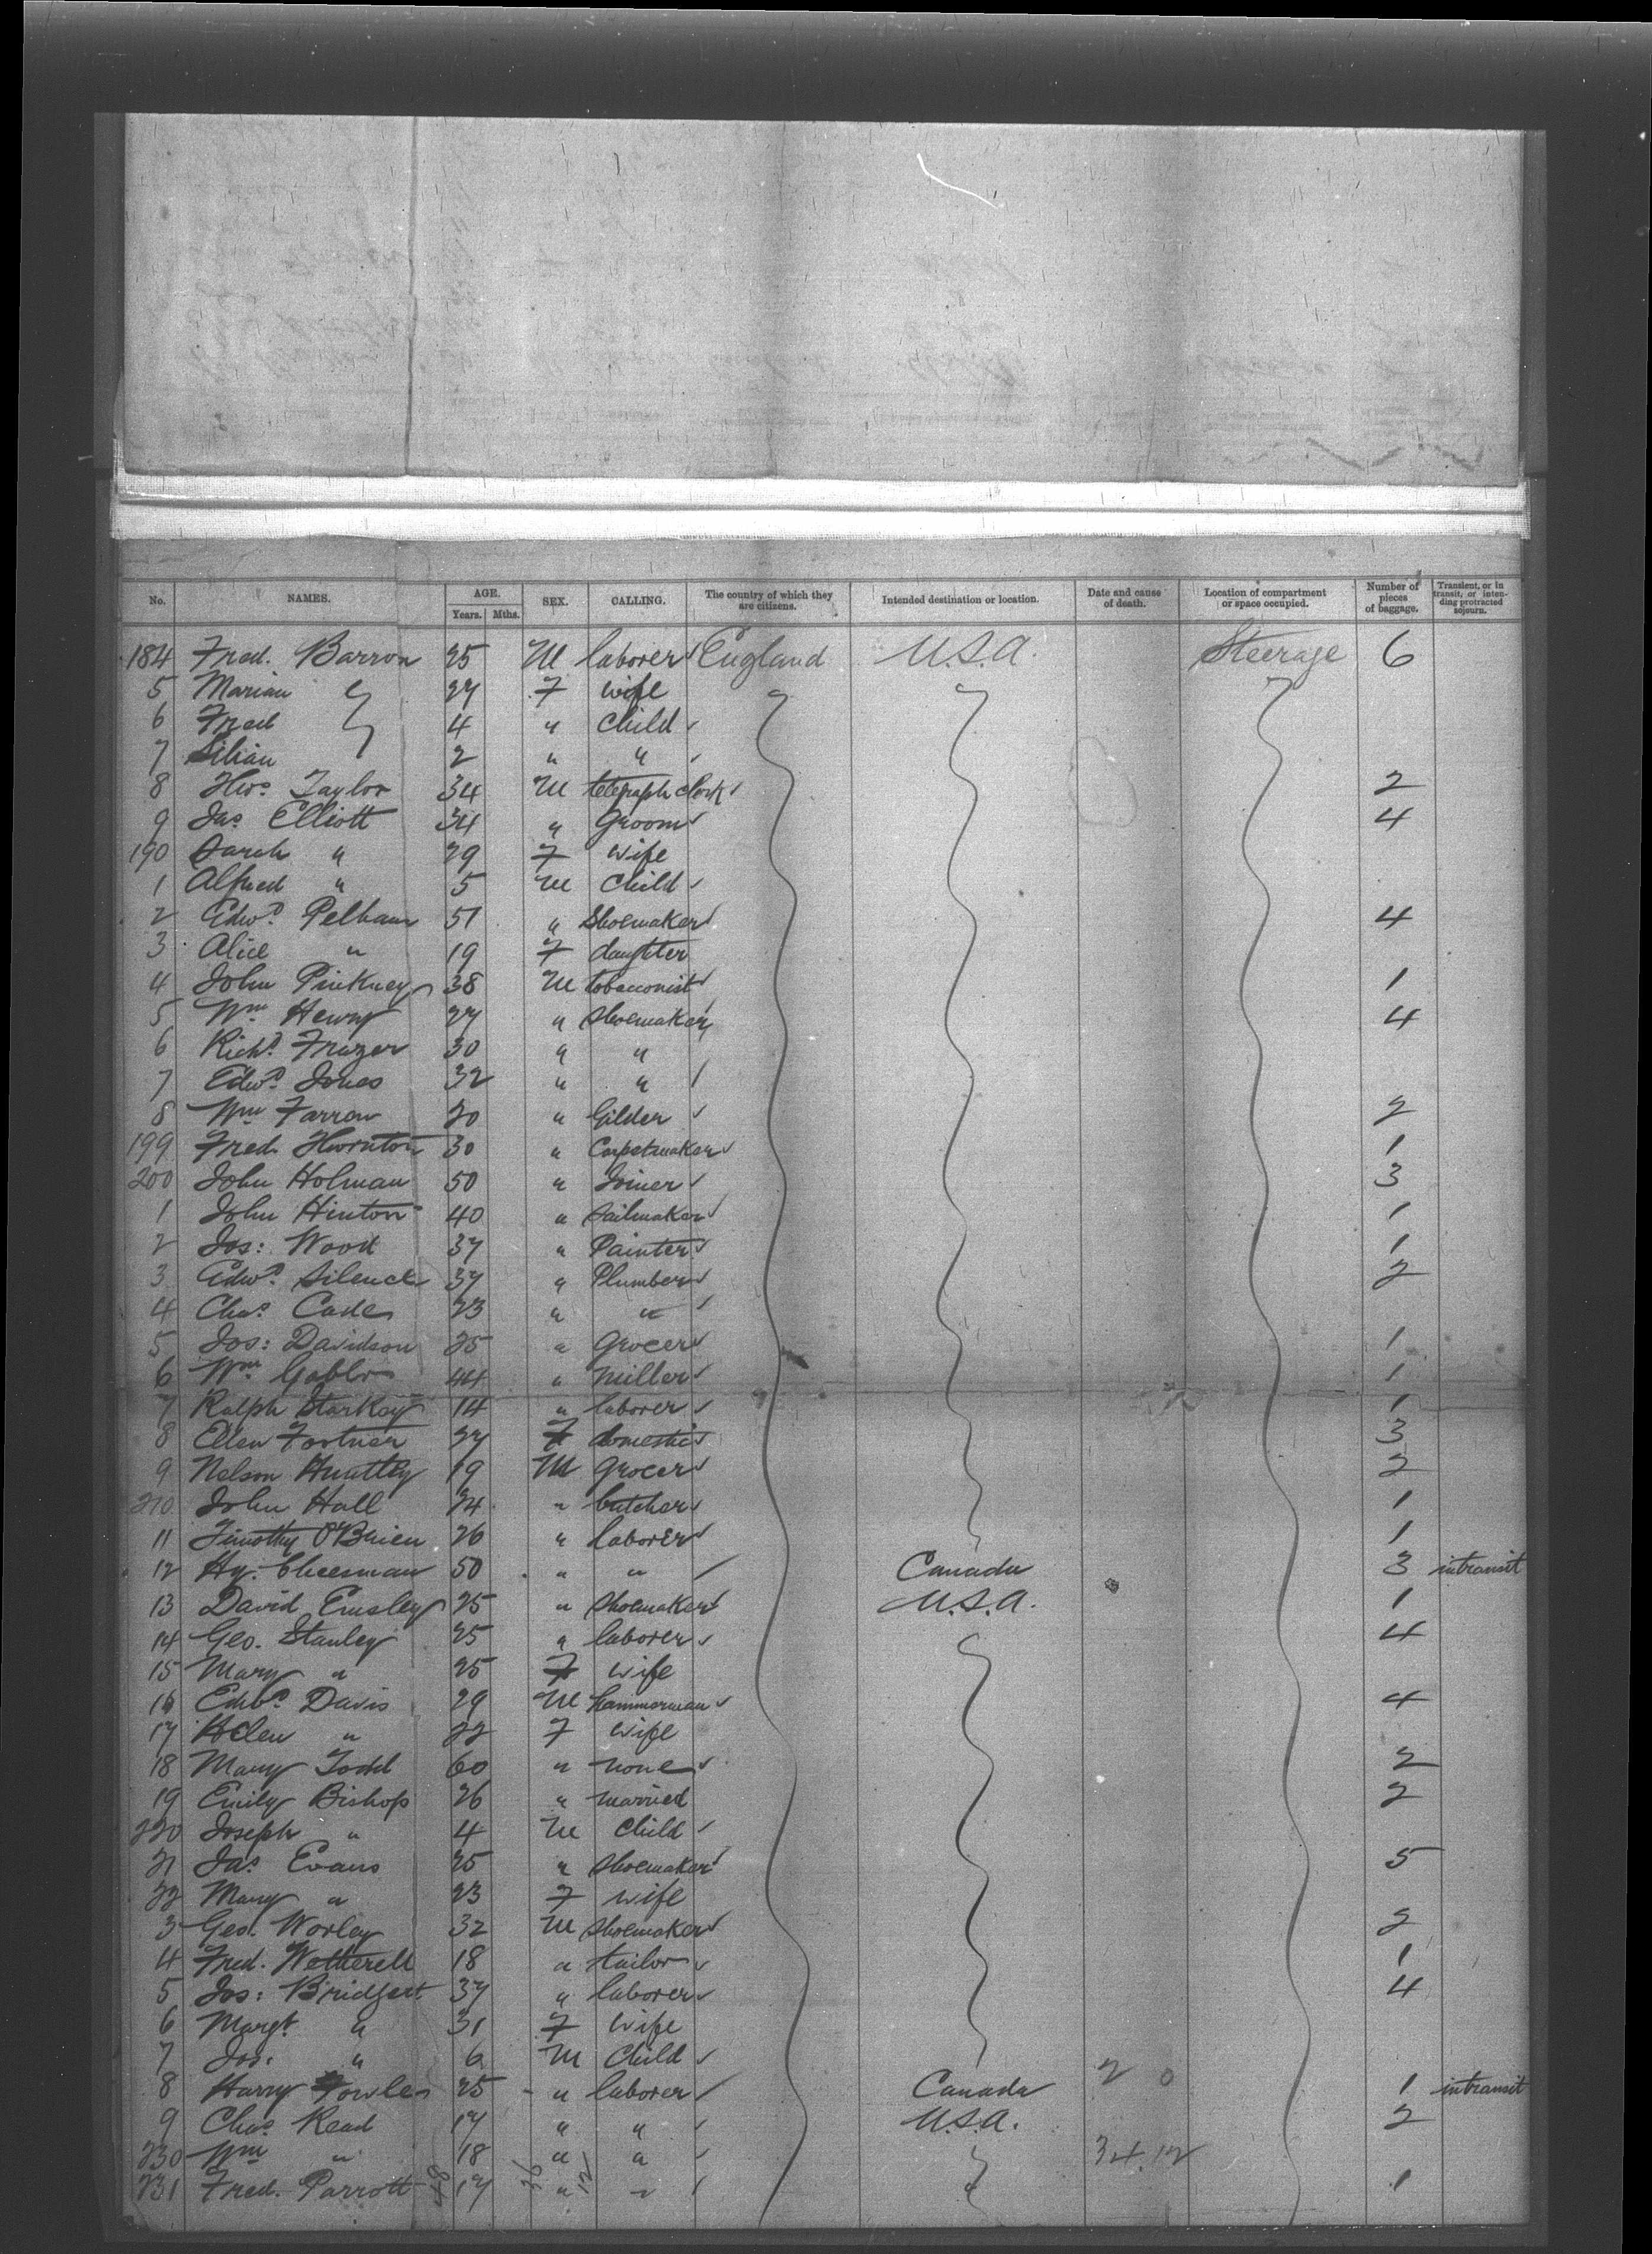 No. NAMES. AGE. Years. Mths. SEX. CALLING. The country of which they are citizens. Intended destination or location. Date and cause of death. Location of compartment or space occupied. Number of pieces of baggage. Transient, or in transit, or intending protracted sojourn.
184 Fred. Barron 25 M laborer England U.S.A. Steerage 6
5 Marian 27 F wife
6 Fred 4 " child
7 Lilian 2 " "
8 Thos. Taylor 34 M telegraph clerk 2
9 Jas. Elliott 34 " Groom 4
190 Sarah " 29 F wife
1 Alfred " 5 M child
2 Edwd. Pelham 51 " Shoemaker 4
3 Alice " 19 F daughter
4 John Pinkney 38 M tobacconist 1
5 Wm. Henry 27 " Shoemaker 4
6 Richd. Frazer 30 " "
7 Edwd. Jones 32 " "
8 Wm Farrow 20 " Gilder 2
199 Fred. Thornton 30 " Carpetmaker 1
200 John Holman 50 " Joiner 3
1 John Hinton 40 " Sailmaker 1
2 Jos: Wood 37 " Painter 1
3 Edwd. Silence 37 " Plumber 2
4 Chas. Cade 23 " "
5 Jos: Davidson 25 " Grocer 1
6 Wm 44 " Miller 1
7 Ralph Starkey 14 " laborer 1
8 Ellen Fortner 27 F domestic 3
9 Nelson Huntley 19 M Grocer 2
210 John Hall 24 " butcher 1
11 Timothy O'Brien 26 " laborer 1
12 Hy. Cheesman 50 " " Canada 3 intransit
13 David Emsley 25 " Shoemaker U.S.A. 1
14 Geo. Stanley 25 " laborer 4
15 Mary " 25 F wife
16 Edwd. Davis 29 M hammerman 4
17 Helen " 22 F wife
18 Mary Todd 60 " none 2
19 Emily Bishop 26 " married 2
220 Joseph " 4 M child
21 Jas. Evans 25 " Shoemaker 5
22 Mary " 23 F wife
3 Geo. Worley 32 M Shoemaker 2
4 Fred. Wetherell 18 " tailor 1
5 Jos: Bridgert 37 " laborer 4
6 Margt. " 31 F wife
7 Jos. " 6 M child
8 Harry Fowler 25 " laborer Canada 2 0 1 intransit
9 Chas. Read 17 " " U.S.A. 2
230 Wm " 18 " " 34.12
231 Fred. Parrott 17 " " 1